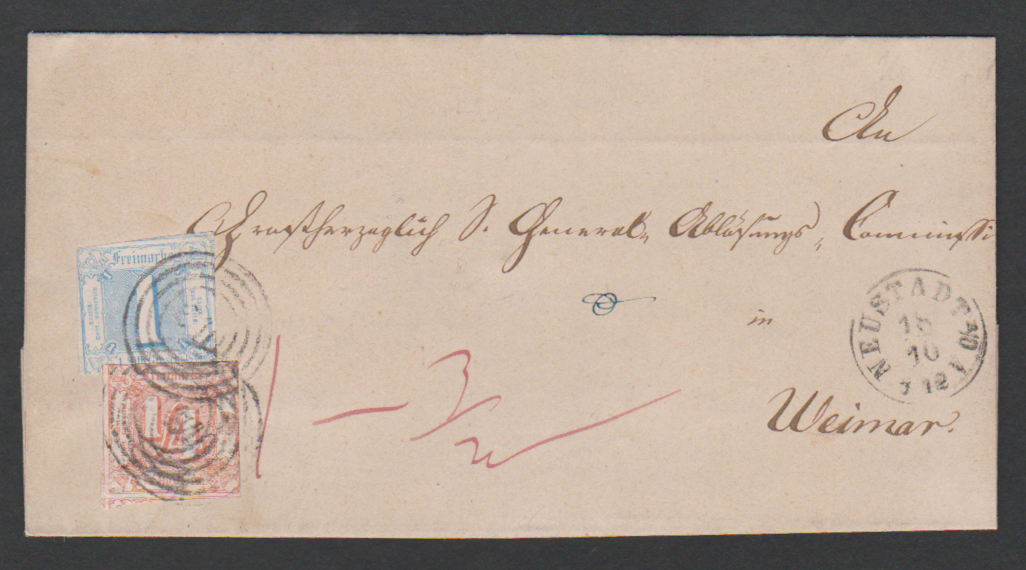 An
Großherzoglich S. General-Ablösungs-Commissi
in
Weimar.
Freimarke
NEUSTADT A/O
18
10
1/2